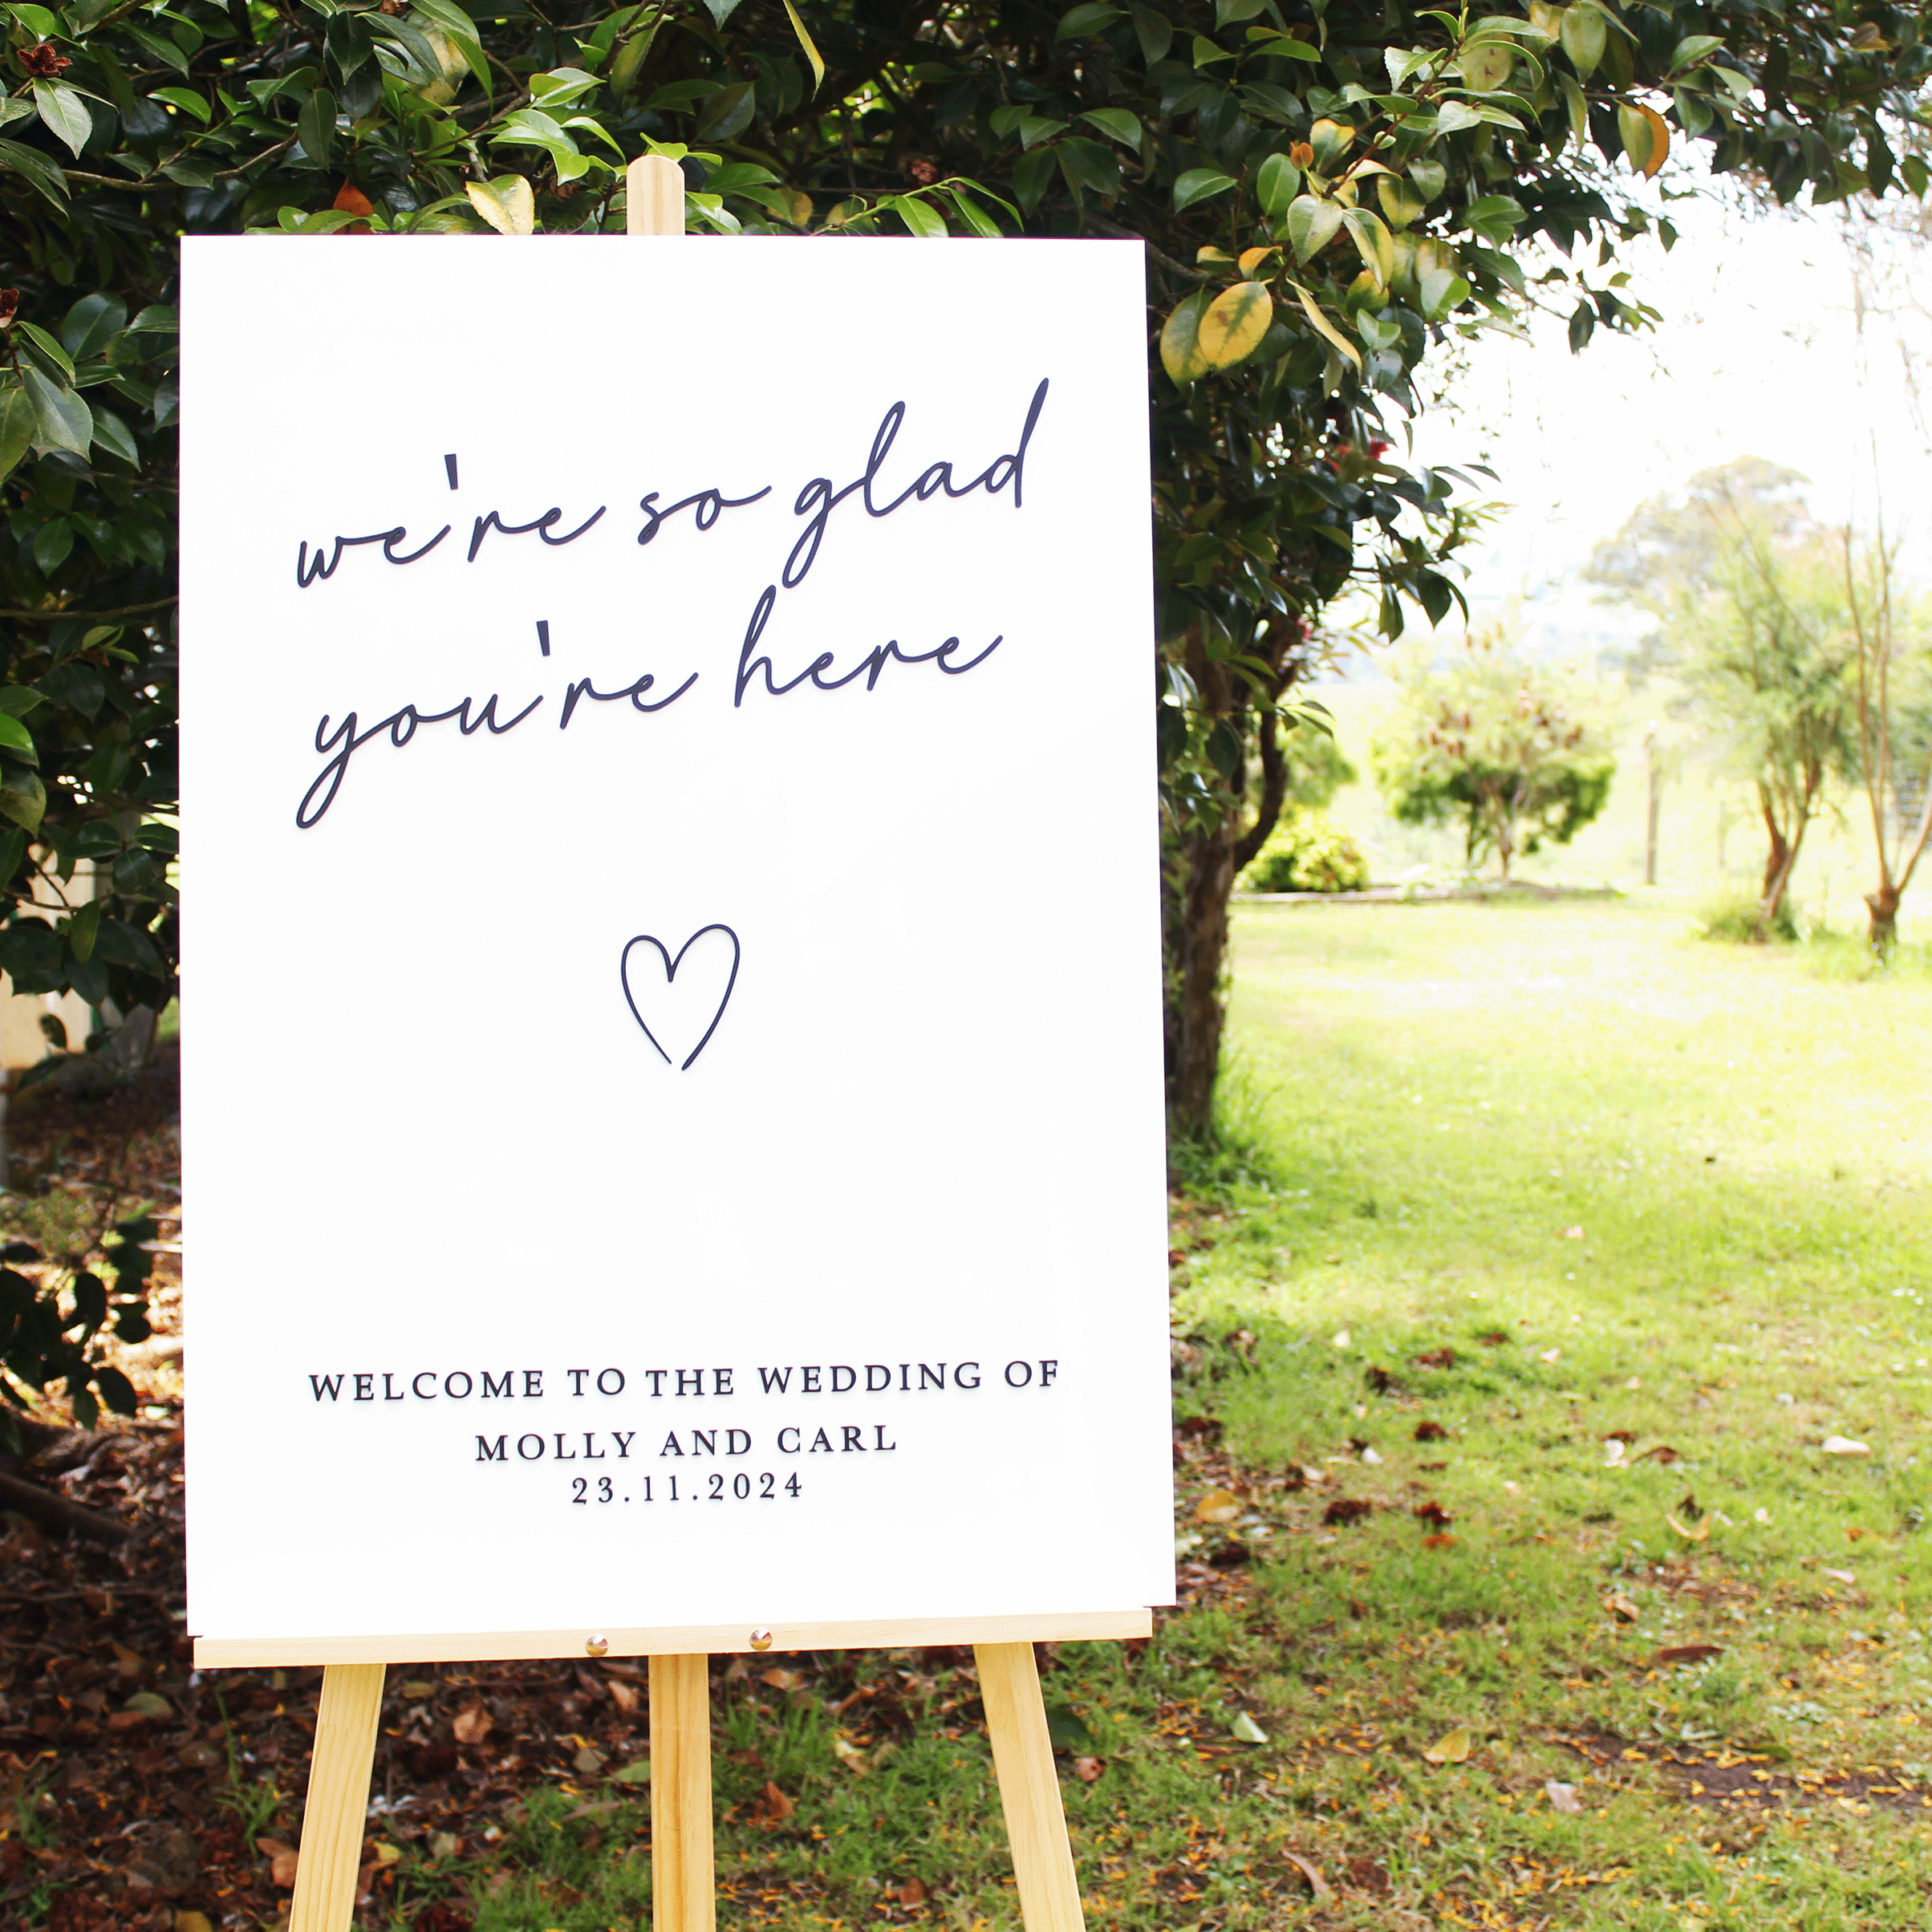 we're so glad
you're here
WELCOME TO THE WEDDING OF
MOLLY AND CARL
23.11.2024